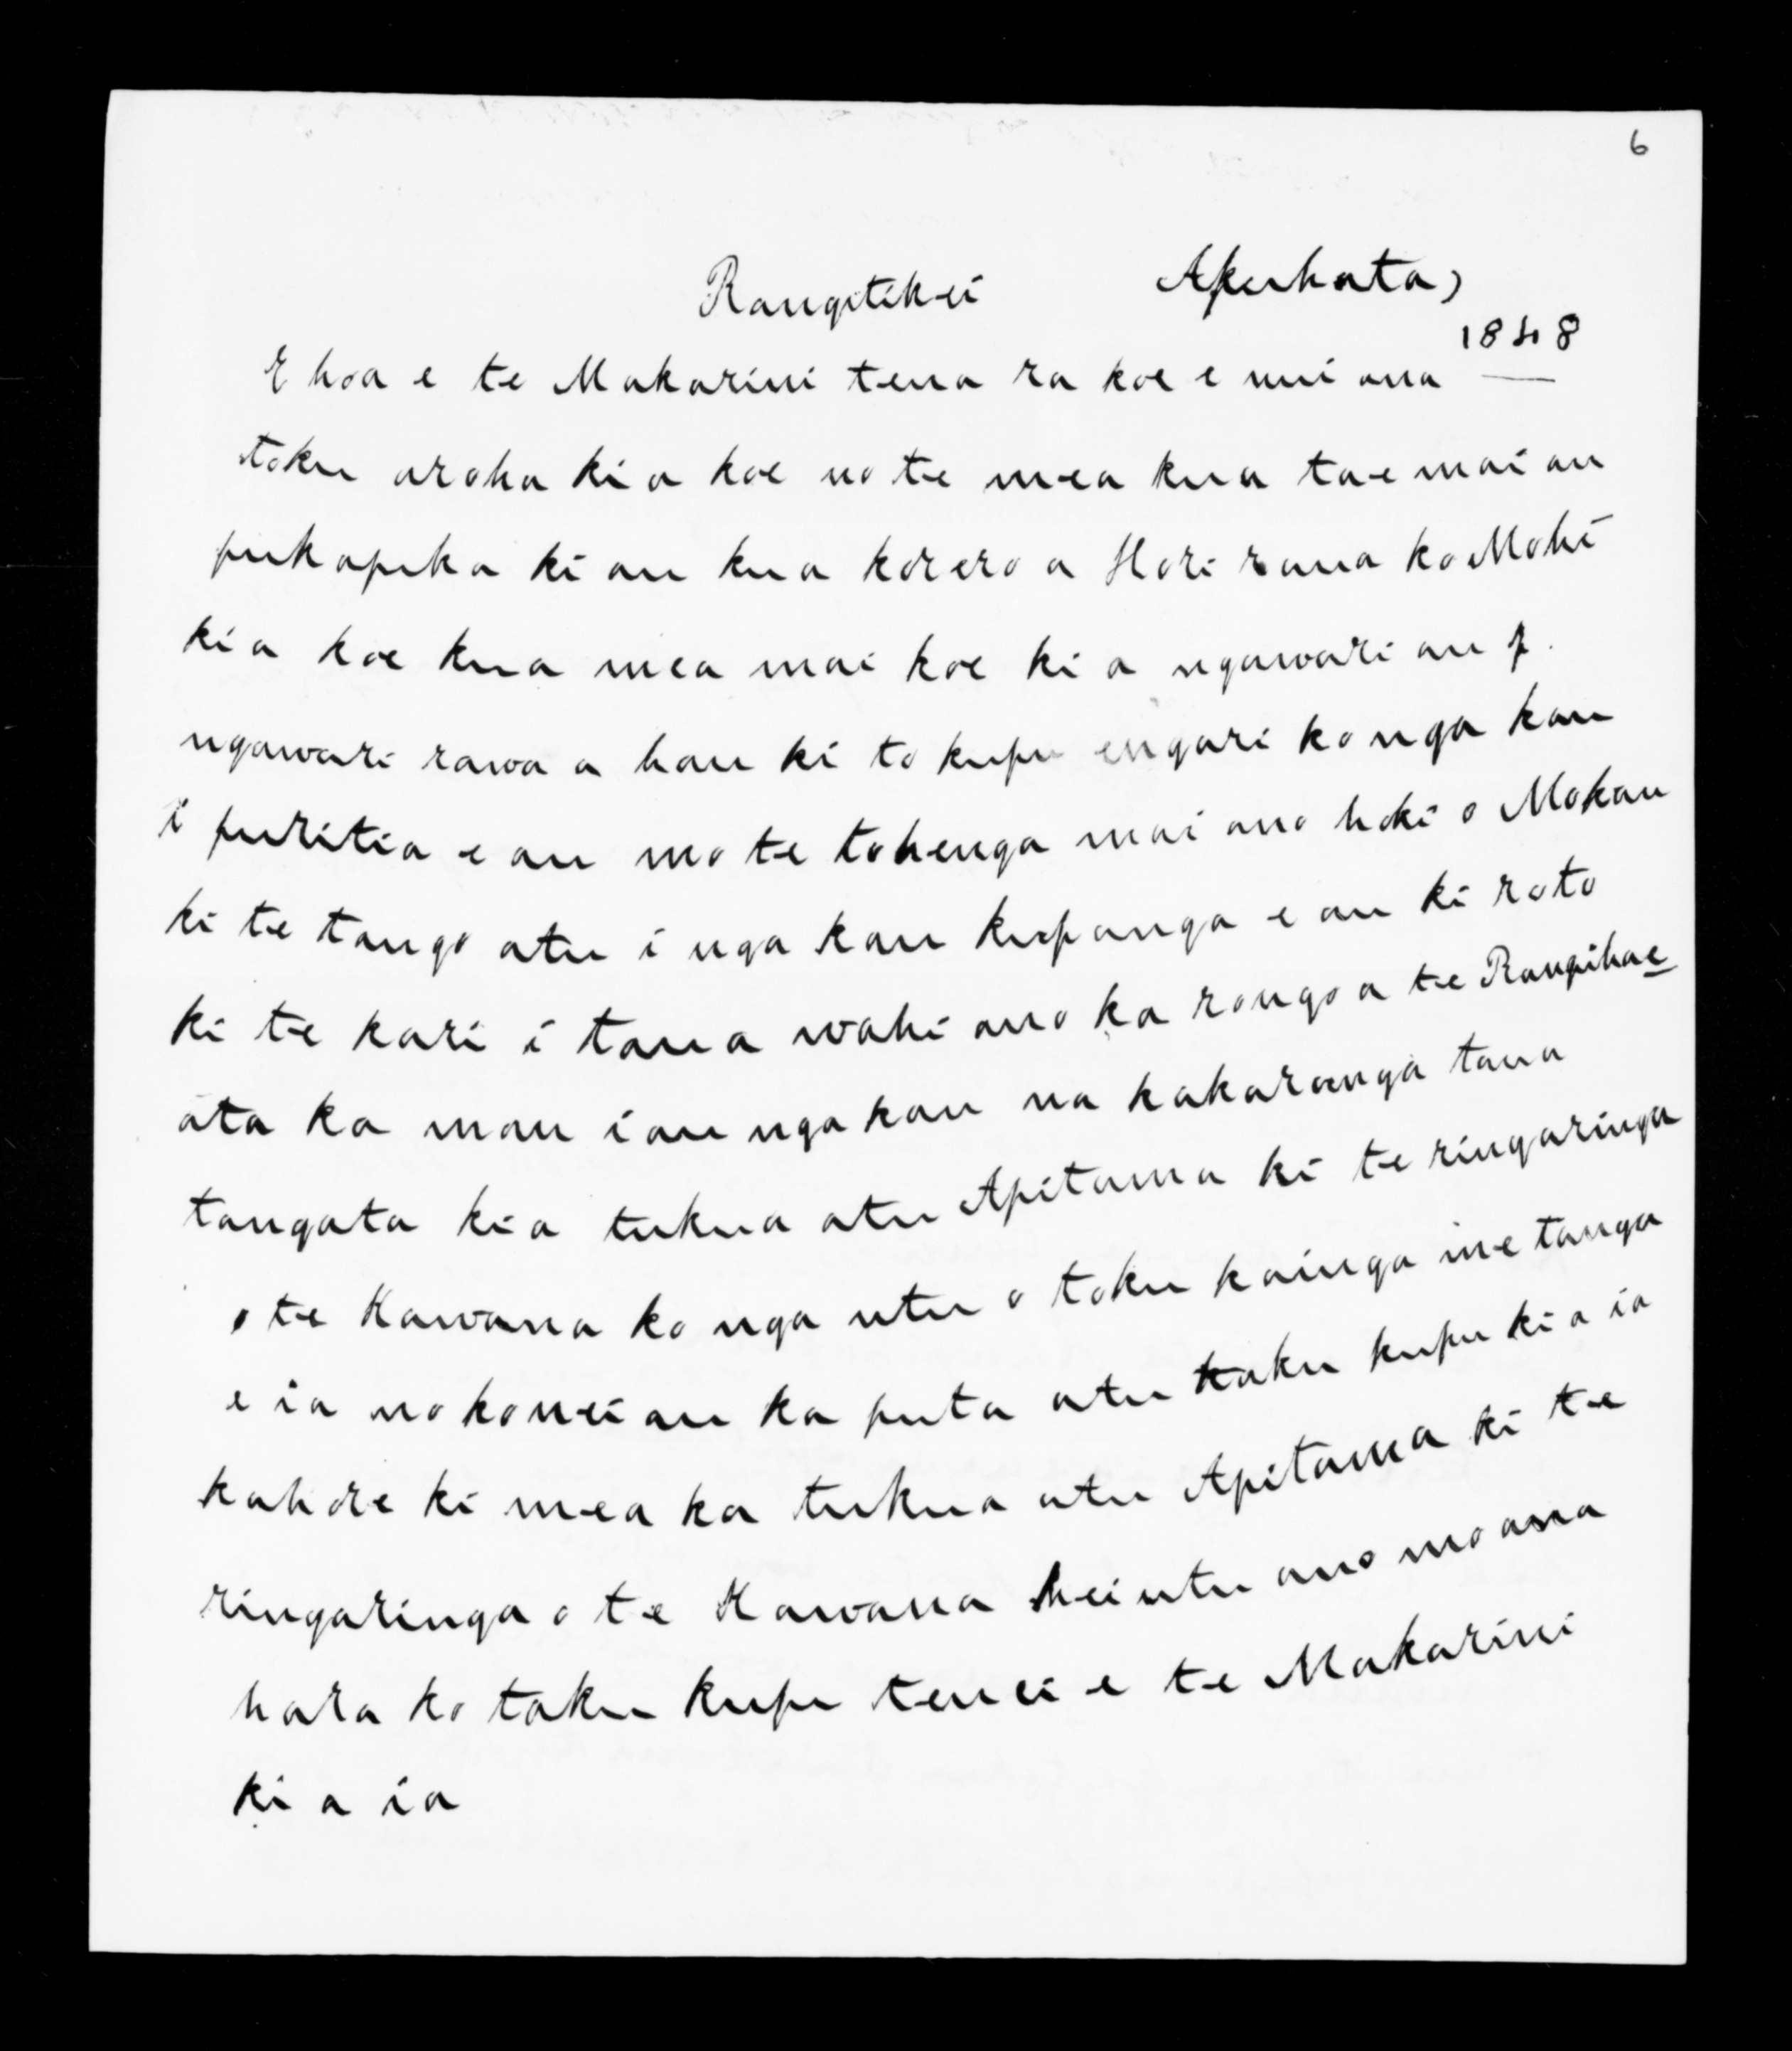 6
Rangitikei Akuhata,
1848
E hoa e te Makarini tena ra koe e nui ana
toku aroha ki a koe no te mea kua tae mai au
pukapuka ki au kua korero a Hori raua ko Mohi
ki a koe kua mea mai koe ki a ngawari au
ngawari rawa a hau ki to kupu engari ko nga kau
i puritia e au mo te tohenga mai ano hoki o Mokau
ki te tango atu i nga kau kupanga e au ki roto
ki te kari i tana wahi ano ka rongo a te Rangihae
ata ka mau i au nga kau na kakaranga taua
tangata ki a tukua atu Apitama ki te ringaringa
o te Kawana ko nga utu o toku kainga me tanga
e ia no konei au ka puta atu taku kupu ki a ia
kahore ki mea ka tukua atu Apitama ki te
ringaringa o te Kawana hei utu ano mo ana
hara ko taku kupu tenei e te Makarini
ki a ia